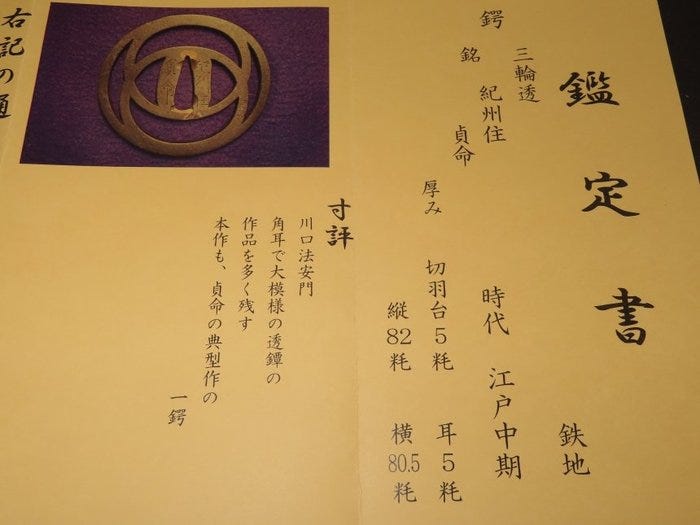 鑑定書
鉄地
鍔 三輪透
銘 紀州住
貞命
時代 江戸中期
厚み 切羽台5粍 耳5粍
縦82粍 横80.5粍
寸評
川口法安門
角耳で大模様の透鐔の
作品を多く残す
本作も、貞命の典型作の
一鍔
右記の通